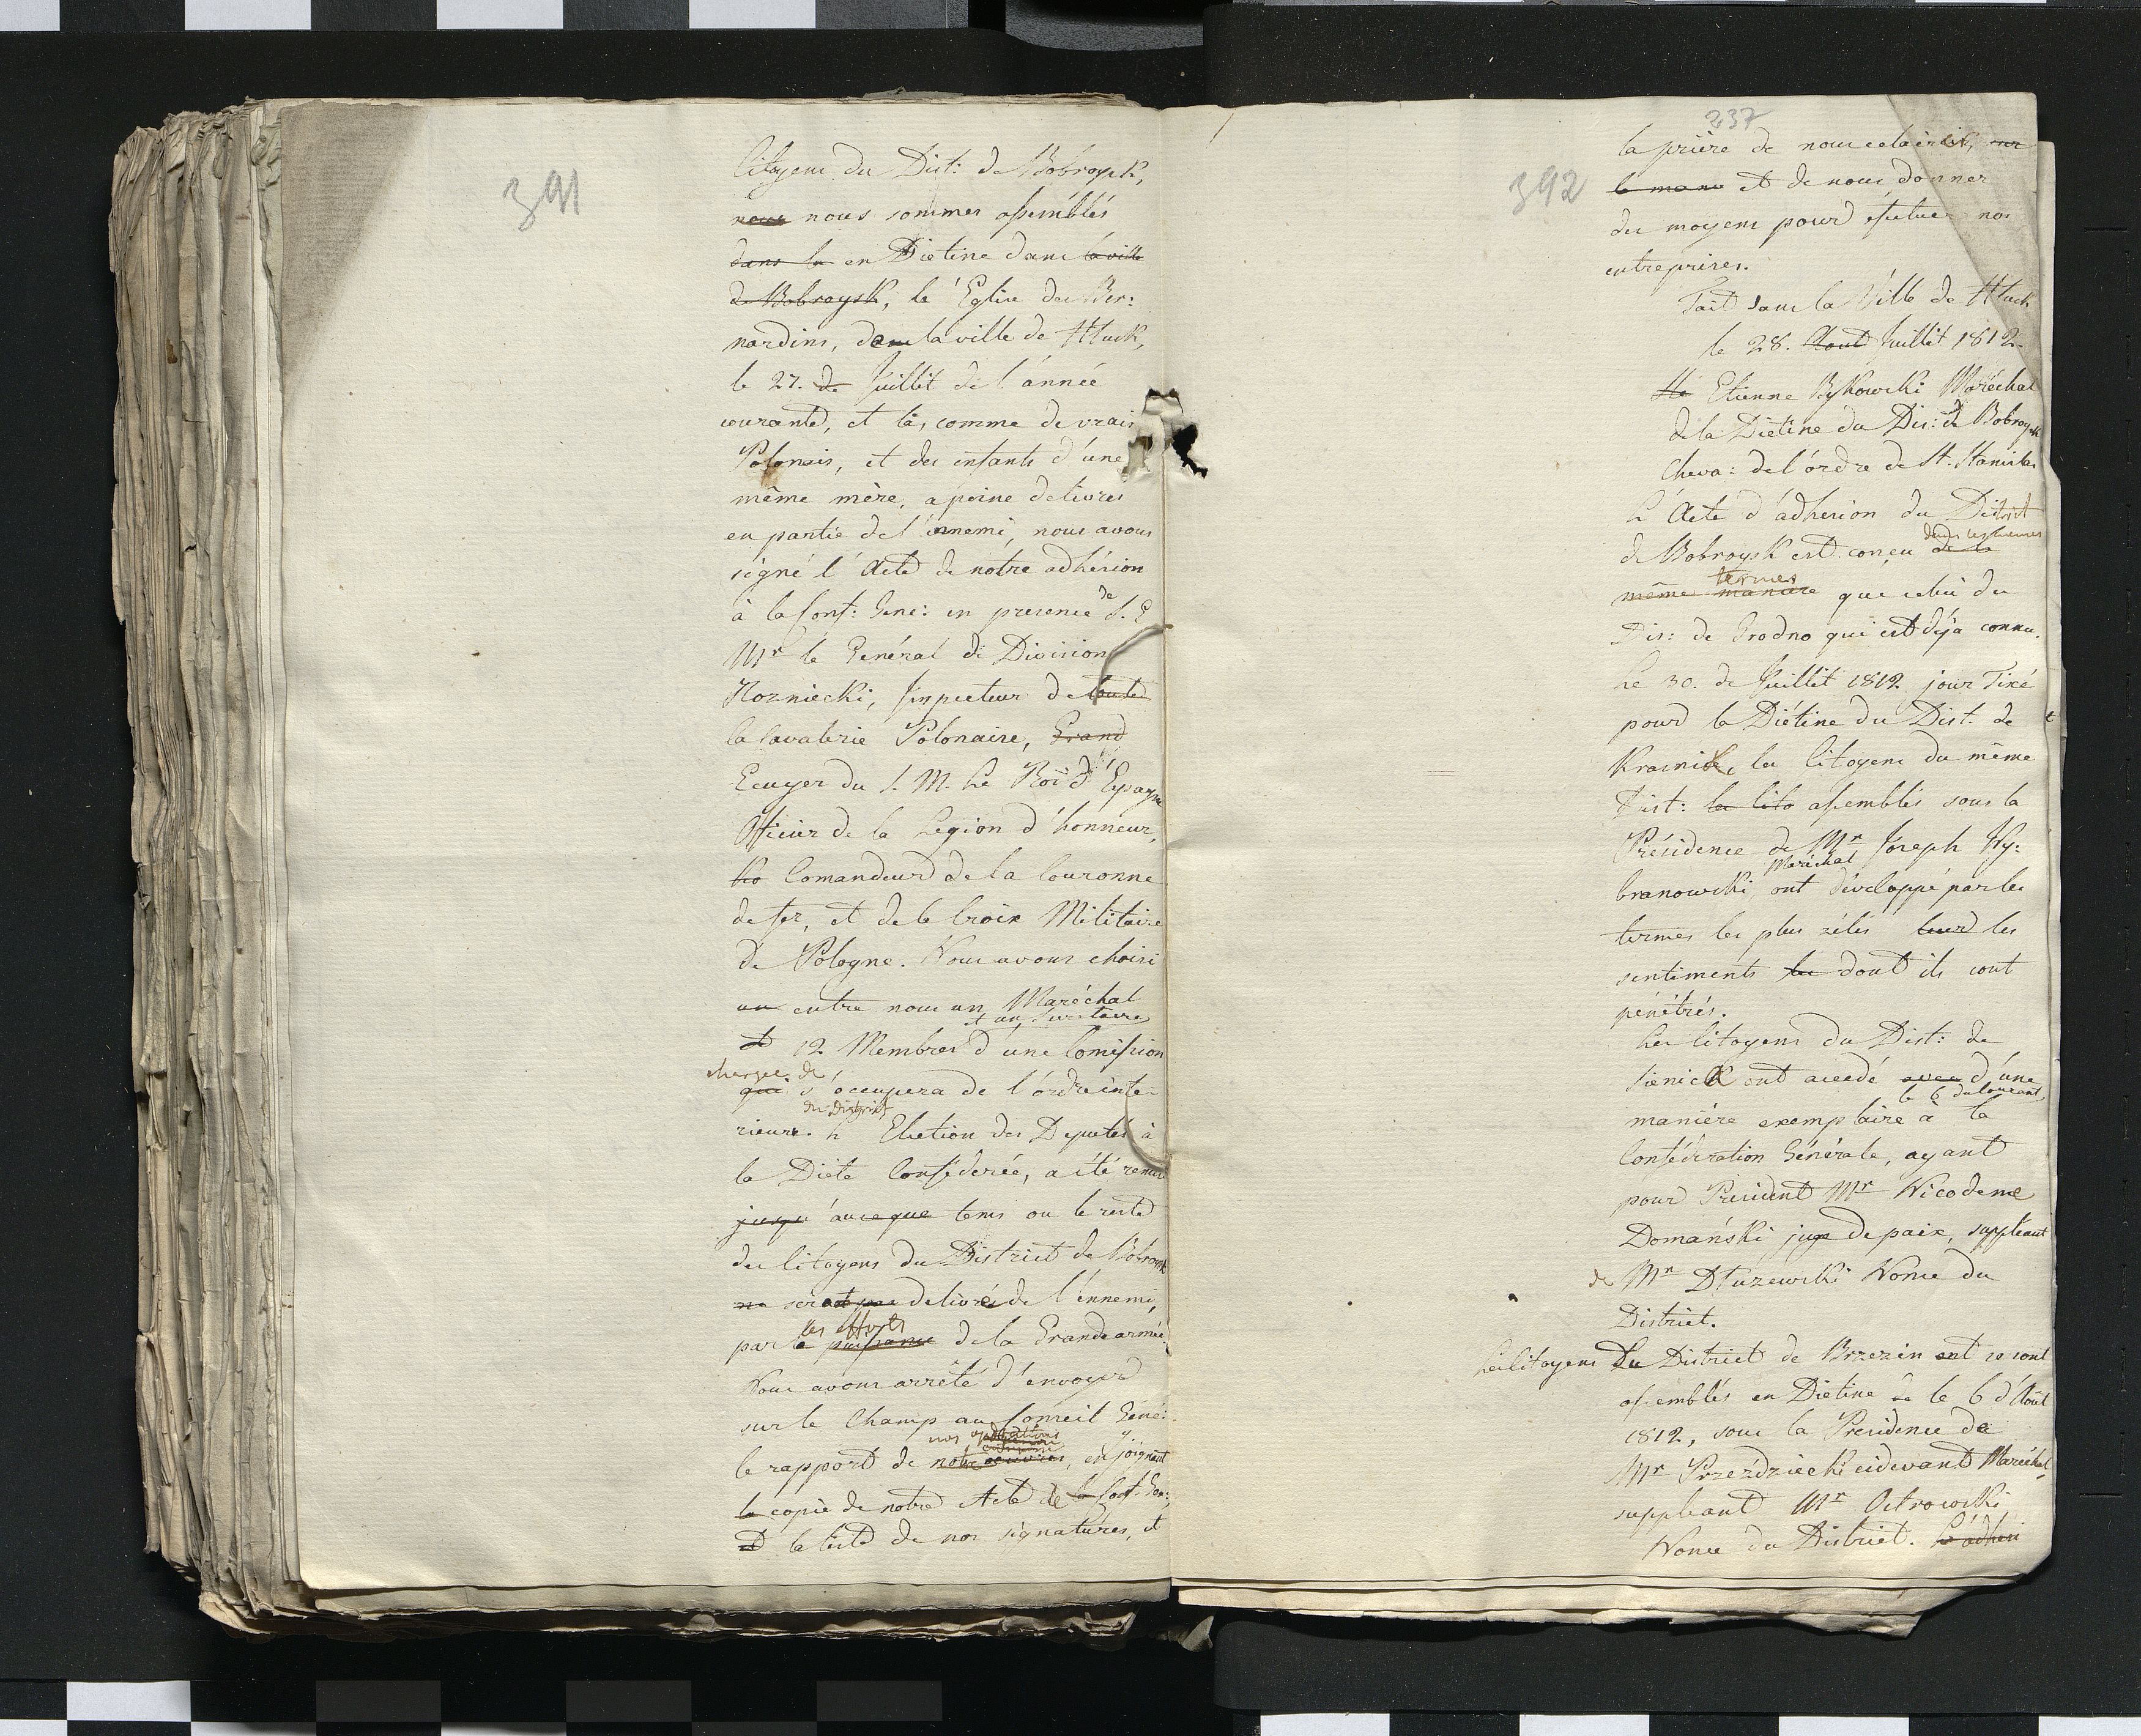 391
Citoyens du Dist: de Bobruysk,
nous nous sommes assemblés
dans la en Diétine dans la ville
de Bobruysk, le Eglise des Ber:
nardins, dans la ville de Hłusk,
le 27. de Juillet de l'année
courante, et là, comme de vrais
Polonais, et des enfants d'une
même mère, a peine delivrés
en partie de l'ennemi, nous avons
signé l'Acte de nôtre adhésion
à la Conf: Gene: en presence de S. E
Mr le Genéral de Division
Rozniecki, Inspecteur de toute
la Cavalerie Polonaise, Grand
Ecuyer du S. M. Le Roi d'Espagne
Officier de la Legion d'honneur,
Co Comandeur de la Couronne
de fer, et de la Croix Militaire
de Pologne. Nous avons choisi
un entre nous un Maréchal
et un Secretaire
et 12 Membres d'une Comission
chargée de
qui s'occupera de l'ordre inte-
du District
rieure. L' Election des Deputés à
la Diete Conféderée, a été remise
jusqu'à ce que tems ou le reste
des Citoyens du District de Bobruysk
ne seront pas delivrés de l'ennemi,
les efforts
par la puissance de la Grande armée.
Nous avons arrêté d'envoyer
sur le Champ au Conseil Géné:
nos opérations
le rapport de notre oeuvres, en y joignant
la copie de notre Acte de la Conf. Gen:,
et la liste de nos signatures, et
237
392
la prière de nous eclaircir, sur
le mano et de nous donner
des moyens pour éfectuer nos
entreprises.
Fait dans la Ville de Hłusk
le 28. Aout Juillet 1812.
Ste Etienne Bykowski Maréchal
de la Diétine du Dis: de Bobruysk
Cheva: de l'ordre de St. Stanislas
L'Acte d'adhésion du District
dans les memes
de Bobruysk est conçu de la
termes
même maniere que celui du
Dis: de Grodno qui est déja connu.
Le 30. de Juillet 1812 jour Fixé
pour la Diétine du Dist. de
Krasnik, les Citoyens du même
Dist: les Cito assemblés sous la
Présidence de Mr Joseph Hry:
Maréchal
branowski, ont développé par les
termes les plus zélés leur les
sentiments les dont ils sont
pénétrés.
Les Citoyens du Dist: de
Sienick ont accedé avec d'une
le 6 du Courant,
manière exemplaire à la
Confédération Générale, ayant
pour President Mr Nicodeme
Domański juge de paix, suppleant
de Mr Dłuzewski Nonce du
District.
Les Citoyens Du District de Brzezin ont se sont
assemblés en Diétine le 6 d'Août
1812, sous la Presidence de
Mr Przeździecki cidevant Maréchal,
suppleant Mr Ostrowski
Nonce du District. L'adhési